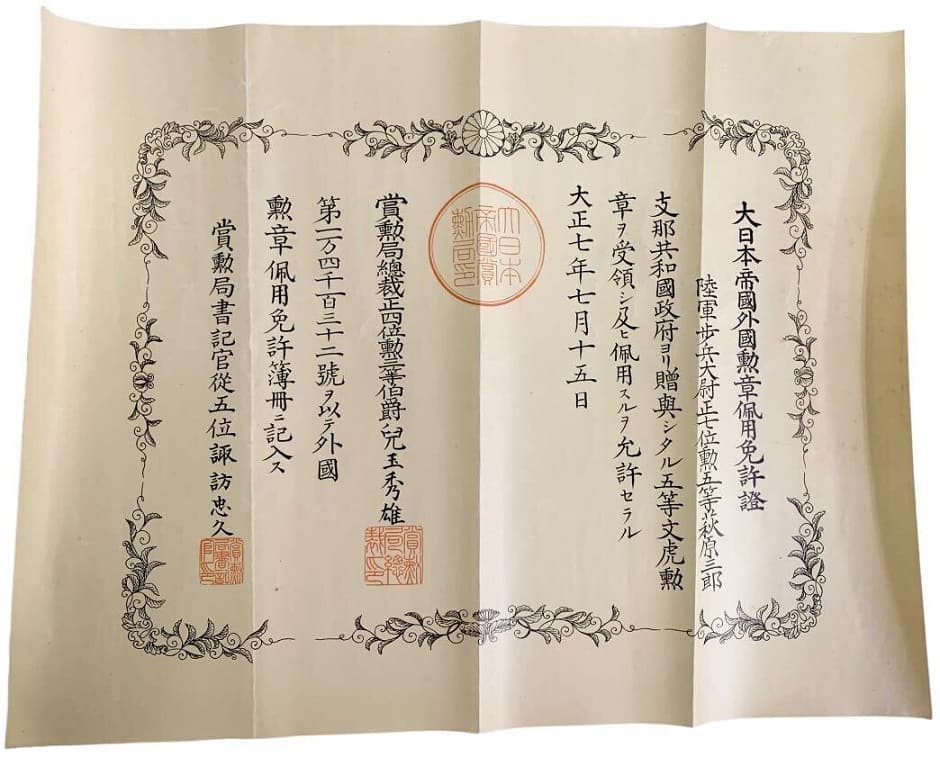 大日本帝國外國勲章佩用免許證
陸軍歩兵大尉正七位勲五等萩原三郎
支那共和國政府ヨリ贈與シタル五等文虎勲
章ヲ受領シ及ヒ佩用スルヲ允許セラル
大正七年七月十五日
大日本
帝國賞
勲局印
賞勲局總裁正四位勲三等伯爵兒玉秀雄
賞勲
局總
裁印
第一万四千百三十二號ヲ以テ外國
勲章佩用免許簿冊ニ記入ス
賞勲局書記官從五位諏訪忠久
賞勲
局書記
官印